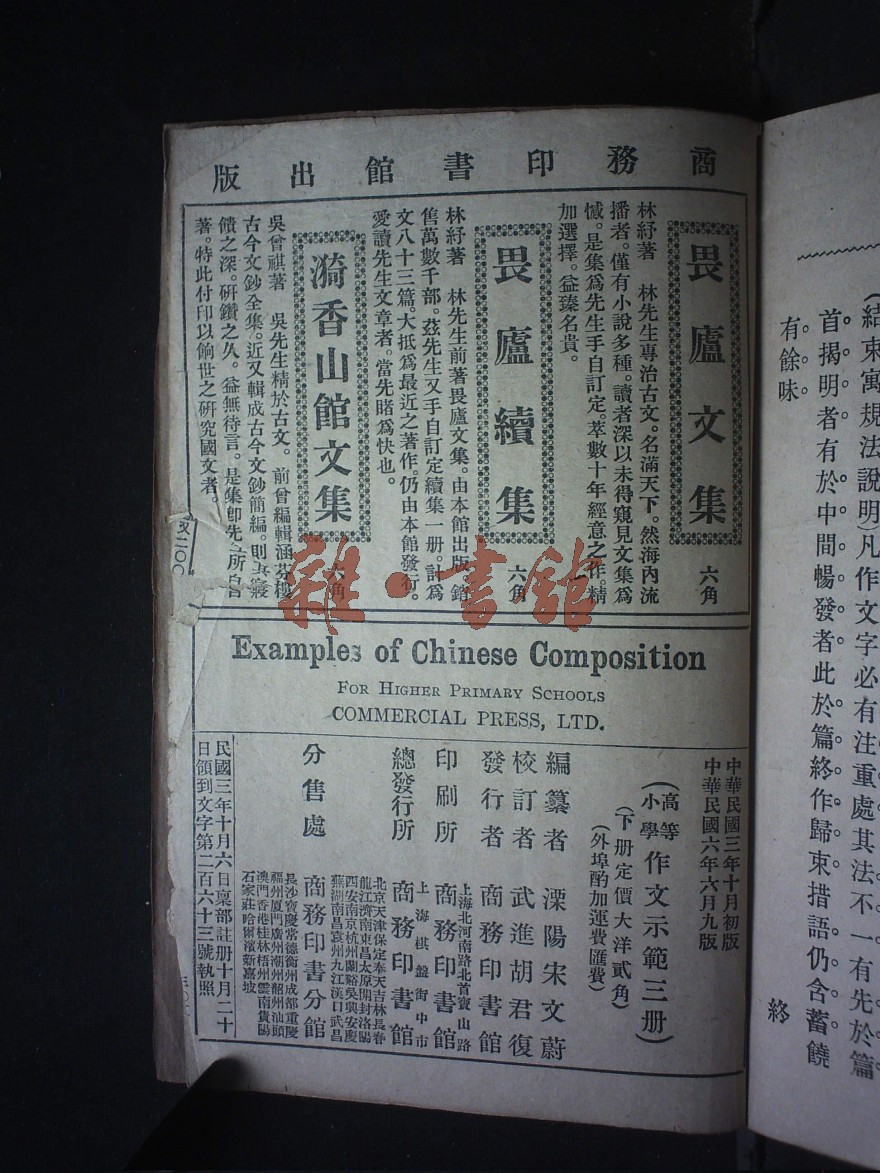 (結束寓規法說明)凡作文字必有注重處其法不一有先於篇
首揭明者有於中間暢發者此於篇終作歸束措語仍含蓄饒
有餘味。
終
商務印書館出版
畏廬文集
六角
林紓著 林先生專治古文。名滿天下。然海內流
播者。僅有小說多種。讀者深以未得窺見文集爲
憾。是集爲先生手自訂定。萃數十年經意之作。精
加選擇。益臻名貴。
畏廬續集
六角
林紓著 林先生前著畏廬文集。由本館出版。銷
售萬數千部。茲先生又手自訂定續集一册。計爲
文八十三篇。大抵爲最近之著作。仍由本館發行。
愛讀先生文章者。當先睹爲快也。
漪香山館文集
六角
吳曾祺著 吳先生精於古文。前曾編輯涵芬樓
古今文鈔全集。近又輯成古今文鈔簡編。則其
饋之深。研鑽之久。益無待言。是集卽先生所自
著。特此付印以餉世之研究國文者。
雜·書館
Examples of Chinese Composition
FOR HIGHER PRIMARY SCHOOLS
COMMERCIAL PRESS, LTD.
中華民國三年十月初版
中華民國六年六月九版
(高等小學作文示範三册)
(下册定價大洋貳角)
(外埠酌加運費匯費)
編纂者 溧陽宋文蔚
校訂者 武進胡君復
發行者 商務印書館
上海北河南路北首寶山路
印刷所 商務印書館
上海棋盤街中市
總發行所 商務印書館
北京天津保定奉天吉林長春
龍江濟南東昌太原開封洛陽
西安南京杭州蘭谿吳興安慶
蕪湖南昌袁州九江漢口武昌
分售處 商務印書分館
長沙寶慶常德衡州成都重慶
福州厦門廣州潮州韶州汕頭
澳門香港桂林梧州雲南貴陽
石家莊哈爾濱新嘉坡
民國三年十月六日稟部註册十月二十
日領到文字第二百六十三號執照